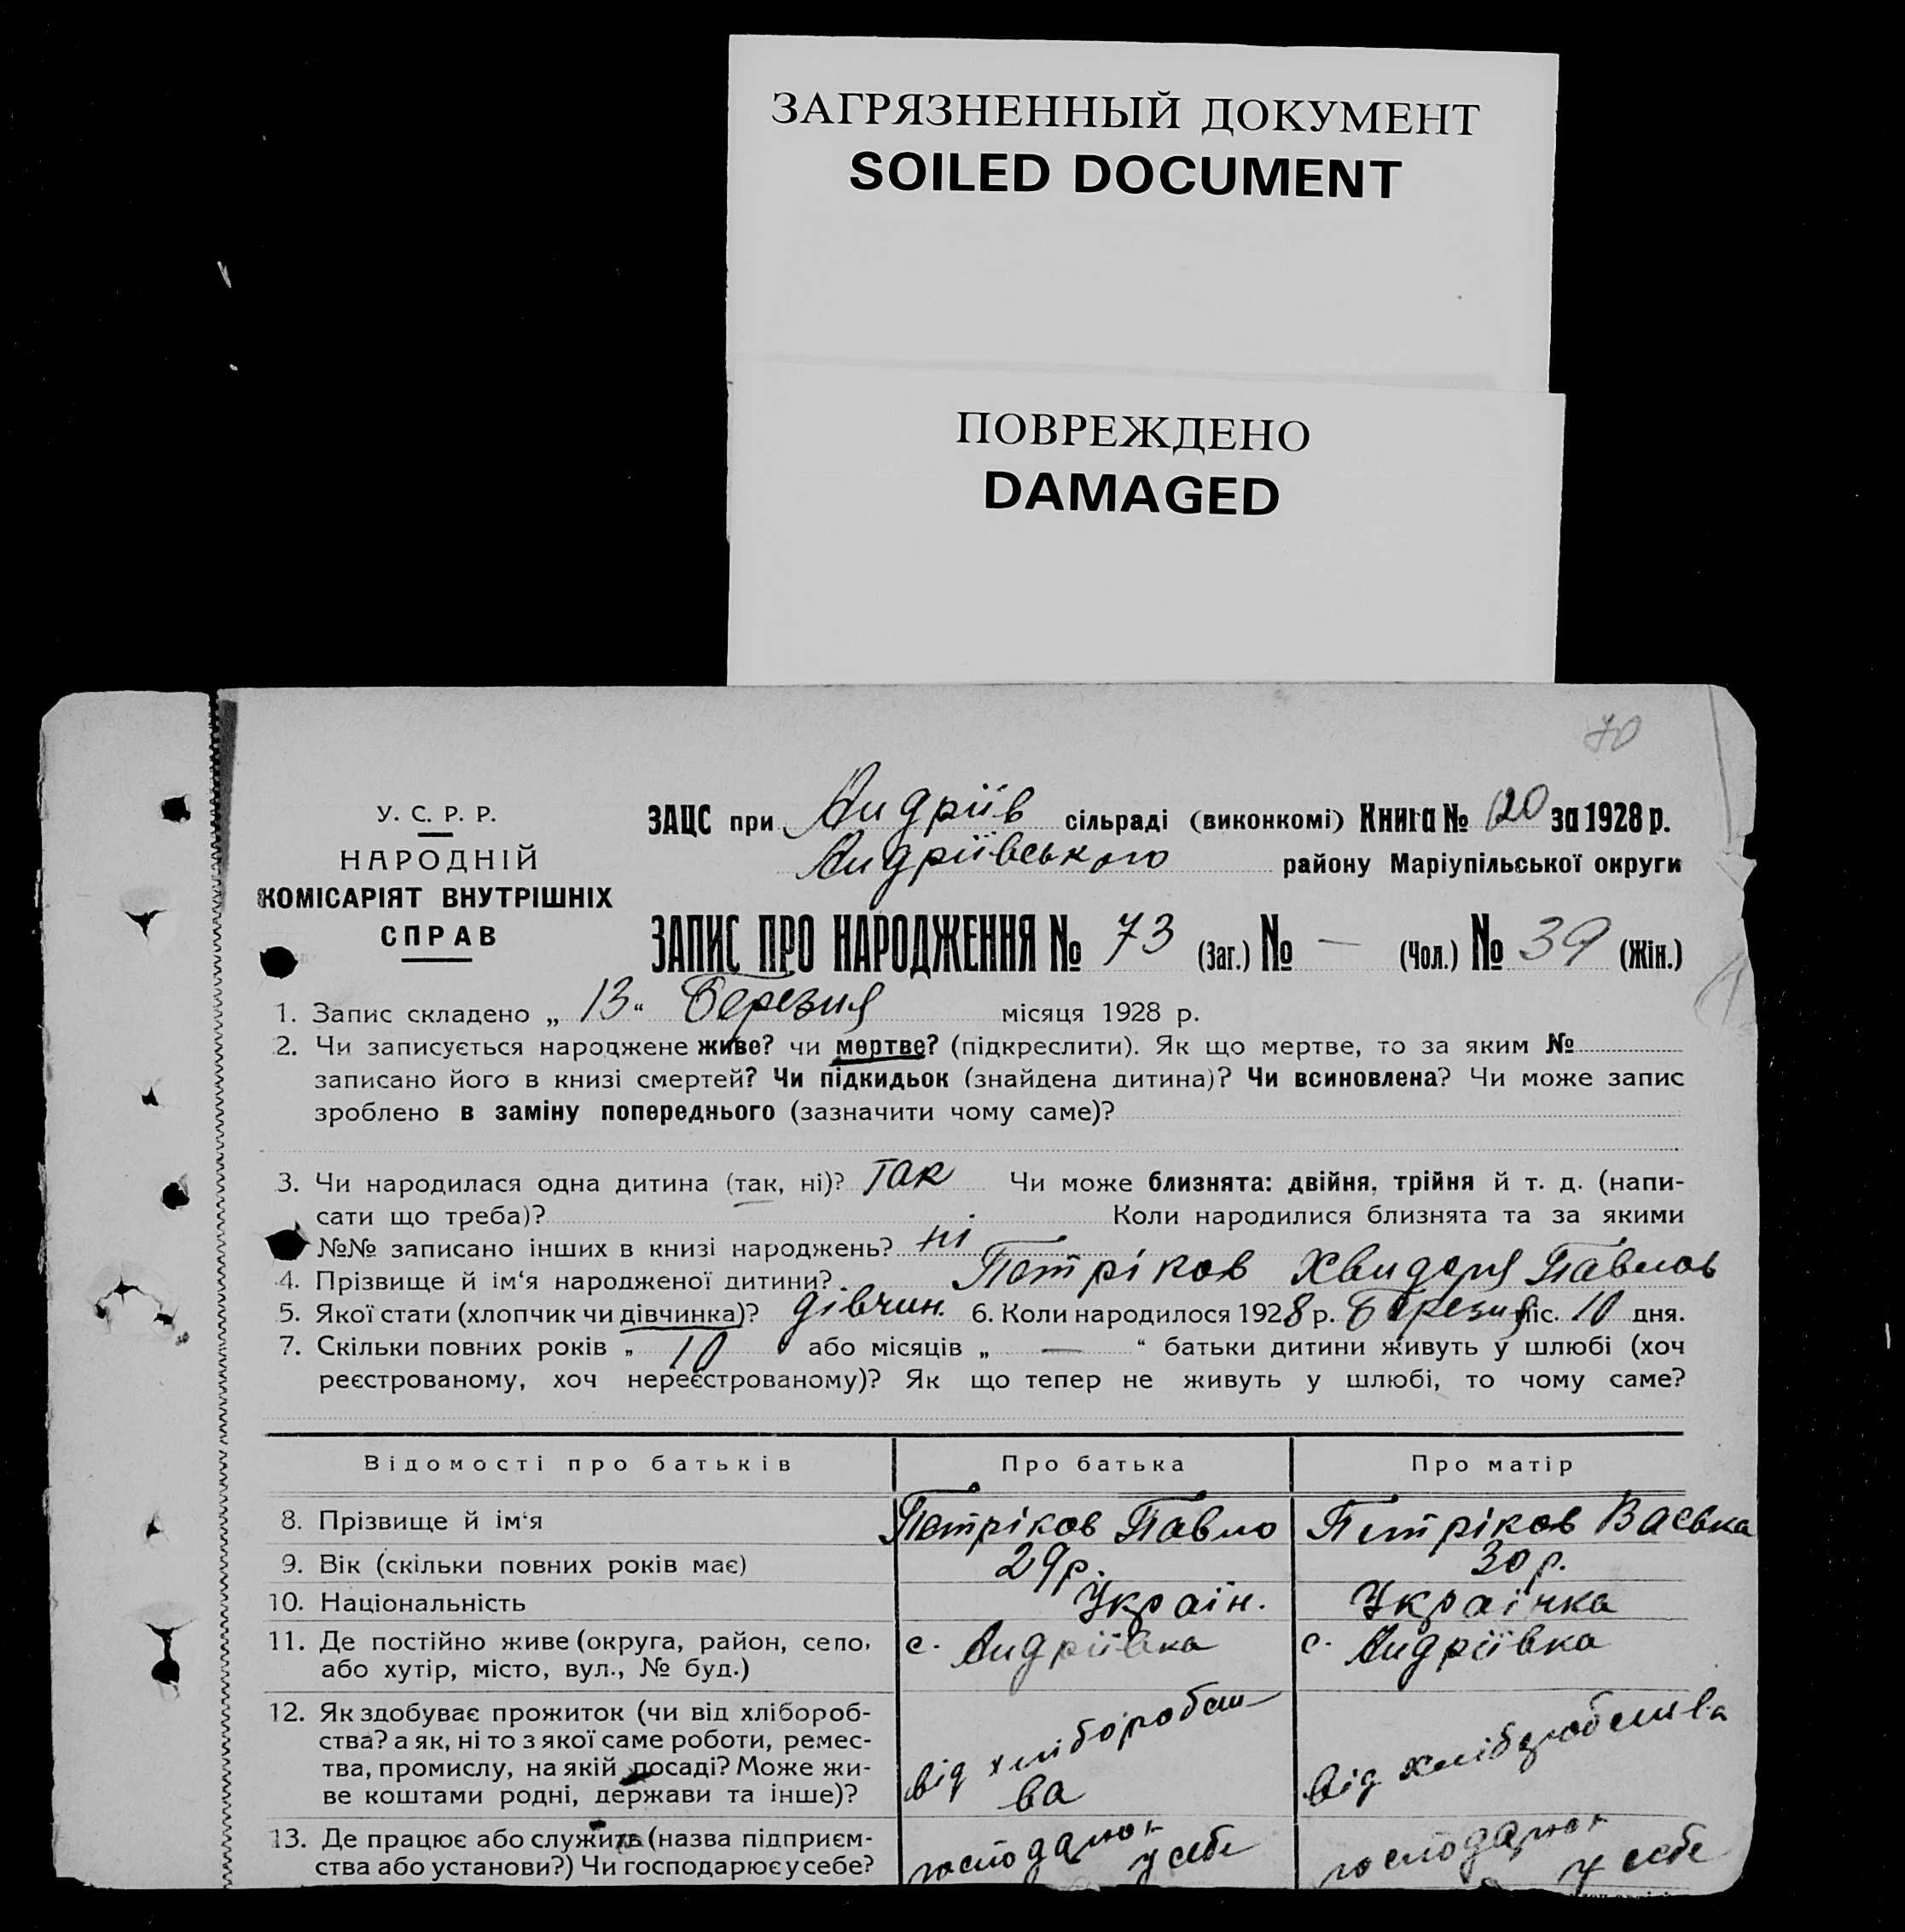 ЗАГРЯЗНЕННЫЙ ДОКУМЕНТ
SOILED DOCUMENT
ПОВРЕЖДЕНО
DAMAGED
70
У. С. Р. Р.
НАРОДНІЙ
КОМІСАРІЯТ ВНУТРІШНІХ
СПРАВ
ЗАЦС при Андріїв сільраді (виконкомі) Книга № 120 за 1928 р.
Андріївського району Маріупільської округи
ЗАПИС ПРО НАРОДЖЕННЯ № 73 (Заг.) № — (Чол.) № 39 (Жін.)
1. Запис складено „ 13 “ Березня місяця 1928 р.
2. Чи записується народжене живе? чи мертве? (підкреслити). Як що мертве, то за яким №
записано його в книзі смертей? Чи підкидьок (знайдена дитина)? Чи всиновлена? Чи може запис
зроблено в заміну попереднього (зазначити чому саме)?
3. Чи народилася одна дитина (так, ні)? Так Чи може близнята: двійня, трійня й т. д. (напи-
сати що треба)? Коли народилися близнята та за якими
№№ записано інших в книзі народжень? ні
4. Прізвище й ім‘я народженої дитини? Петріков Хвидоря Павлов
5. Якої стати (хлопчик чи дівчинка)? дівчин. 6. Коли народилось 1928 р. Березня міс. 10 дня.
7. Скільки повних років „ 10 або місяців „ — “ батьки дитини живуть у шлюбі (хоч
реєстрованому, хоч нереєстрованому)? Як що тепер не живуть у шлюбі, то чому саме?
Відомості про батьків Про батька Про матір
8. Прізвище й ім‘я Петріков Павло Петріков Васьвка
9. Вік (скільки повних років має) 29 р. 30 р.
10. Національність Україн. Українка
11. Де постійно живе (округа, район, село, с. Андріївка с. Андріївка
або хутір, місто, вул., № буд.)
12. Як здобуває прожиток (чи від хлібороб- від хліборобст від хліборобства
ства? а як, ні то з якої саме роботи, ремес-
тва, промислу, на якій посаді? Може жи-
ве коштами родні, держави та інше)? ва
13. Де працює або служить (назва підприєм-
ства або установи?) Чи господарює у себе? у себе у себе